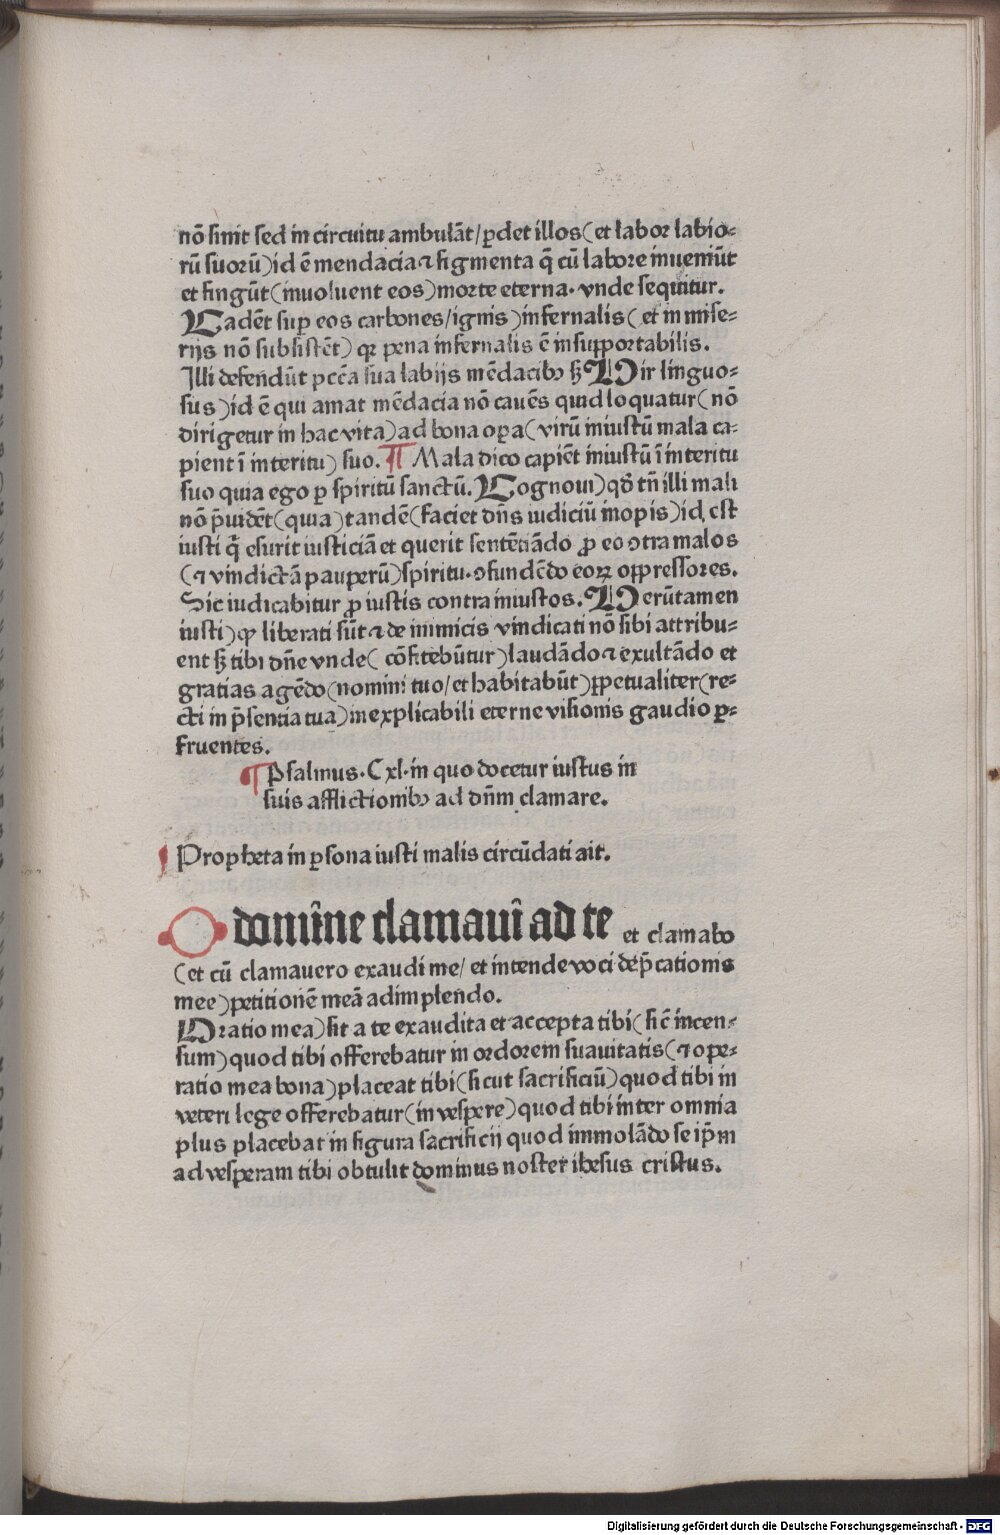 nō sinit sed in circuitu ambulāt/ ꝑdet illos(et labor labio⸗
rū suorū)id ē mendacia ⁊ figmenta q̄ cū labore inueniūt
et fingūt(inuoluent eos)morte eterna. vnde sequitur.
Cadēt suꝑ eos carbones/ignis)infernalis( et in mise⸗
rijs nō subsistēt) qꝛ pena infernalis ē insupportabilis.
Illi defendūt pccā sua labijs mēdacibꝰ sꝫ Vir linguo⸗
sus)id ē qui amat mēdacia nō cauēs quid loquatur(nō
dirigetur in hac vita)ad bona oꝑa(virū iniustū mala ca⸗
pient ī interitu) suo. ¶ Mala dico capiēt iniustū ī interitu
suo quia ego ꝑ spiritū sanctū. Cognoui)qð tn̄ illi mali
nō p̄uidēt(quia)tandē(faciet dn̄s iudiciū inopis)id est
iusti q̄ esurit iusticiā et querit sentētiādo ꝓ eo ↄtra malos
(⁊ vindictā pauperū)spiritu. ↄfundēdo eoꝝ oppressores.
Sic iudicabitur ꝓ iustis contra iniustos. Verūtamen
iusti)qꝫ liberati sūt ⁊ de inimicis vindicati nō sibi attribu⸗
ent sꝫ tibi dn̄e vnde( cōfitebūtur)laudādo ⁊ exultādo et
gratias agēdo(nomini tuo/et habitabūt)ꝑpetualiter(re⸗
cti in p̄sentia tua)inexplicabili eterne visionis gaudio ꝑ⸗
fruentes.
¶ Psalmus. Cxl. in quo docetur iustus in
suis afflictionibꝰ ad dn̄m clamare.
Propheta in ꝑsona iusti malis circūdati ait.
O domine clamaui ad te et clamabo
(et cū clamauero exaudi me/ et intende voci dep̄cationis
mee)petitionē meā adimplendo.
Oratio mea)sit a te exaudita et accepta tibi(sic̄ incen⸗
sum)quod tibi offerebatur in ordorem suauitatis(⁊ ope⸗
ratio mea bona)placeat tibi(sicut sacrificiū)quod tibi in
veteri lege offerebatur(in vespere)quod tibi inter omnia
plus placebat in figura sacrificij quod immolādo se ip̄m
ad vesperam tibi obtulit dominus noster ihesus cristus.
Digitalisierung gefördert durch die Deutsche Forschungsgemeinschaft - DFG